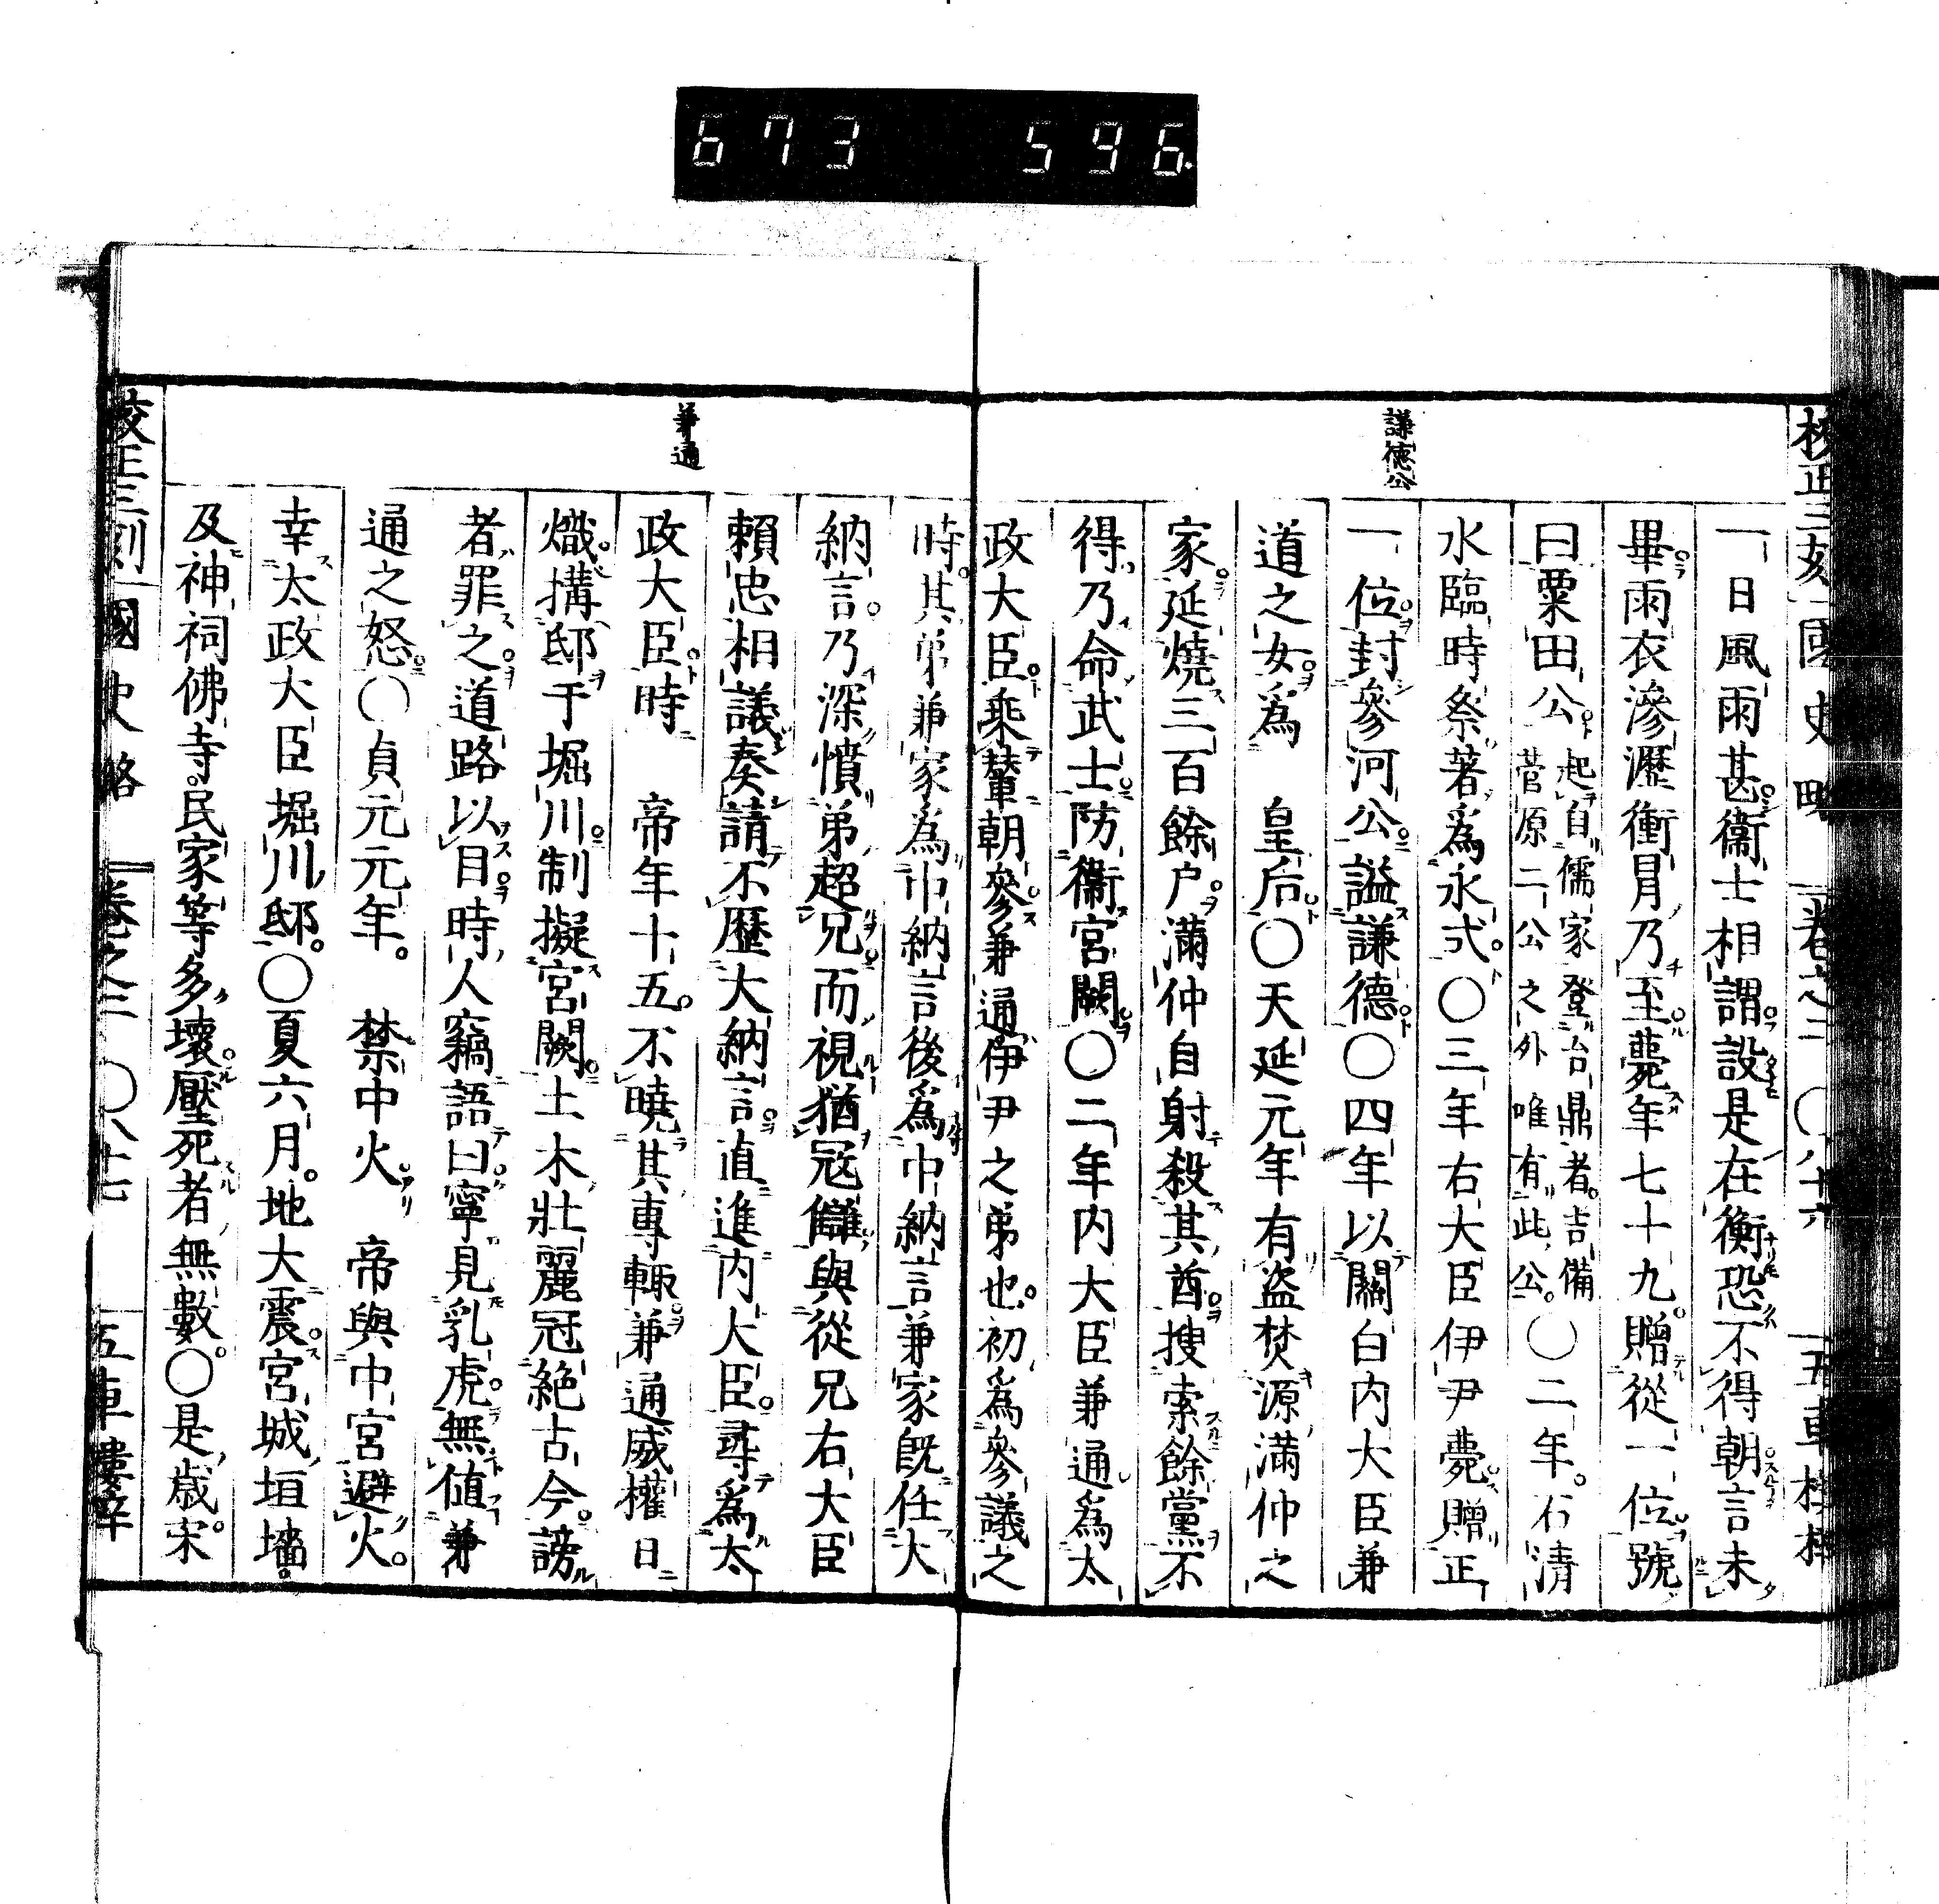 673 596
校正三刻 國史略 卷之三 〇八十六 五車樓梓
謙德公
一日風雨甚衞士相謂設是在衡恐不得朝言未
畢雨衣滲瀝衝冒乃至薨年七十九贈從一位號
曰粟田公起自儒家登台鼎者吉備菅原二公之外唯有此公〇二年石清
水臨時祭著爲永式〇三年右大臣伊尹薨贈正
一位封參河公謚謙德〇四年以關白内大臣兼
道之女爲 皇后〇天延元年有盗焚源滿仲之
家延燒三百餘户滿仲自射殺其酋搜索餘黨不
得乃命武士防衞宮闕〇二年内大臣兼通爲太
政大臣乘輦朝參兼通伊尹之弟也初爲參議之
兼通
時其弟兼家爲中納言後爲中納言兼家既任大
納言乃深憤弟超兄而視猶寇讎與從兄右大臣
賴忠相議奏請不歷大納言直進内大臣尋爲太
政大臣時 帝年十五不曉其專輒兼通威權日
熾搆邸于堀川制擬宮闕土木壯麗冠絶古今謗
者罪之道路以目時人竊語曰寧見乳虎無値兼
通之怒〇貞元元年 禁中火 帝與中宮避火
幸太政大臣堀川邸〇夏六月地大震宮城垣墻
及神祠佛寺民家等多壞壓死者無數〇是歲宋
校正三刻 國史略 卷之三 〇八十七 五車樓梓